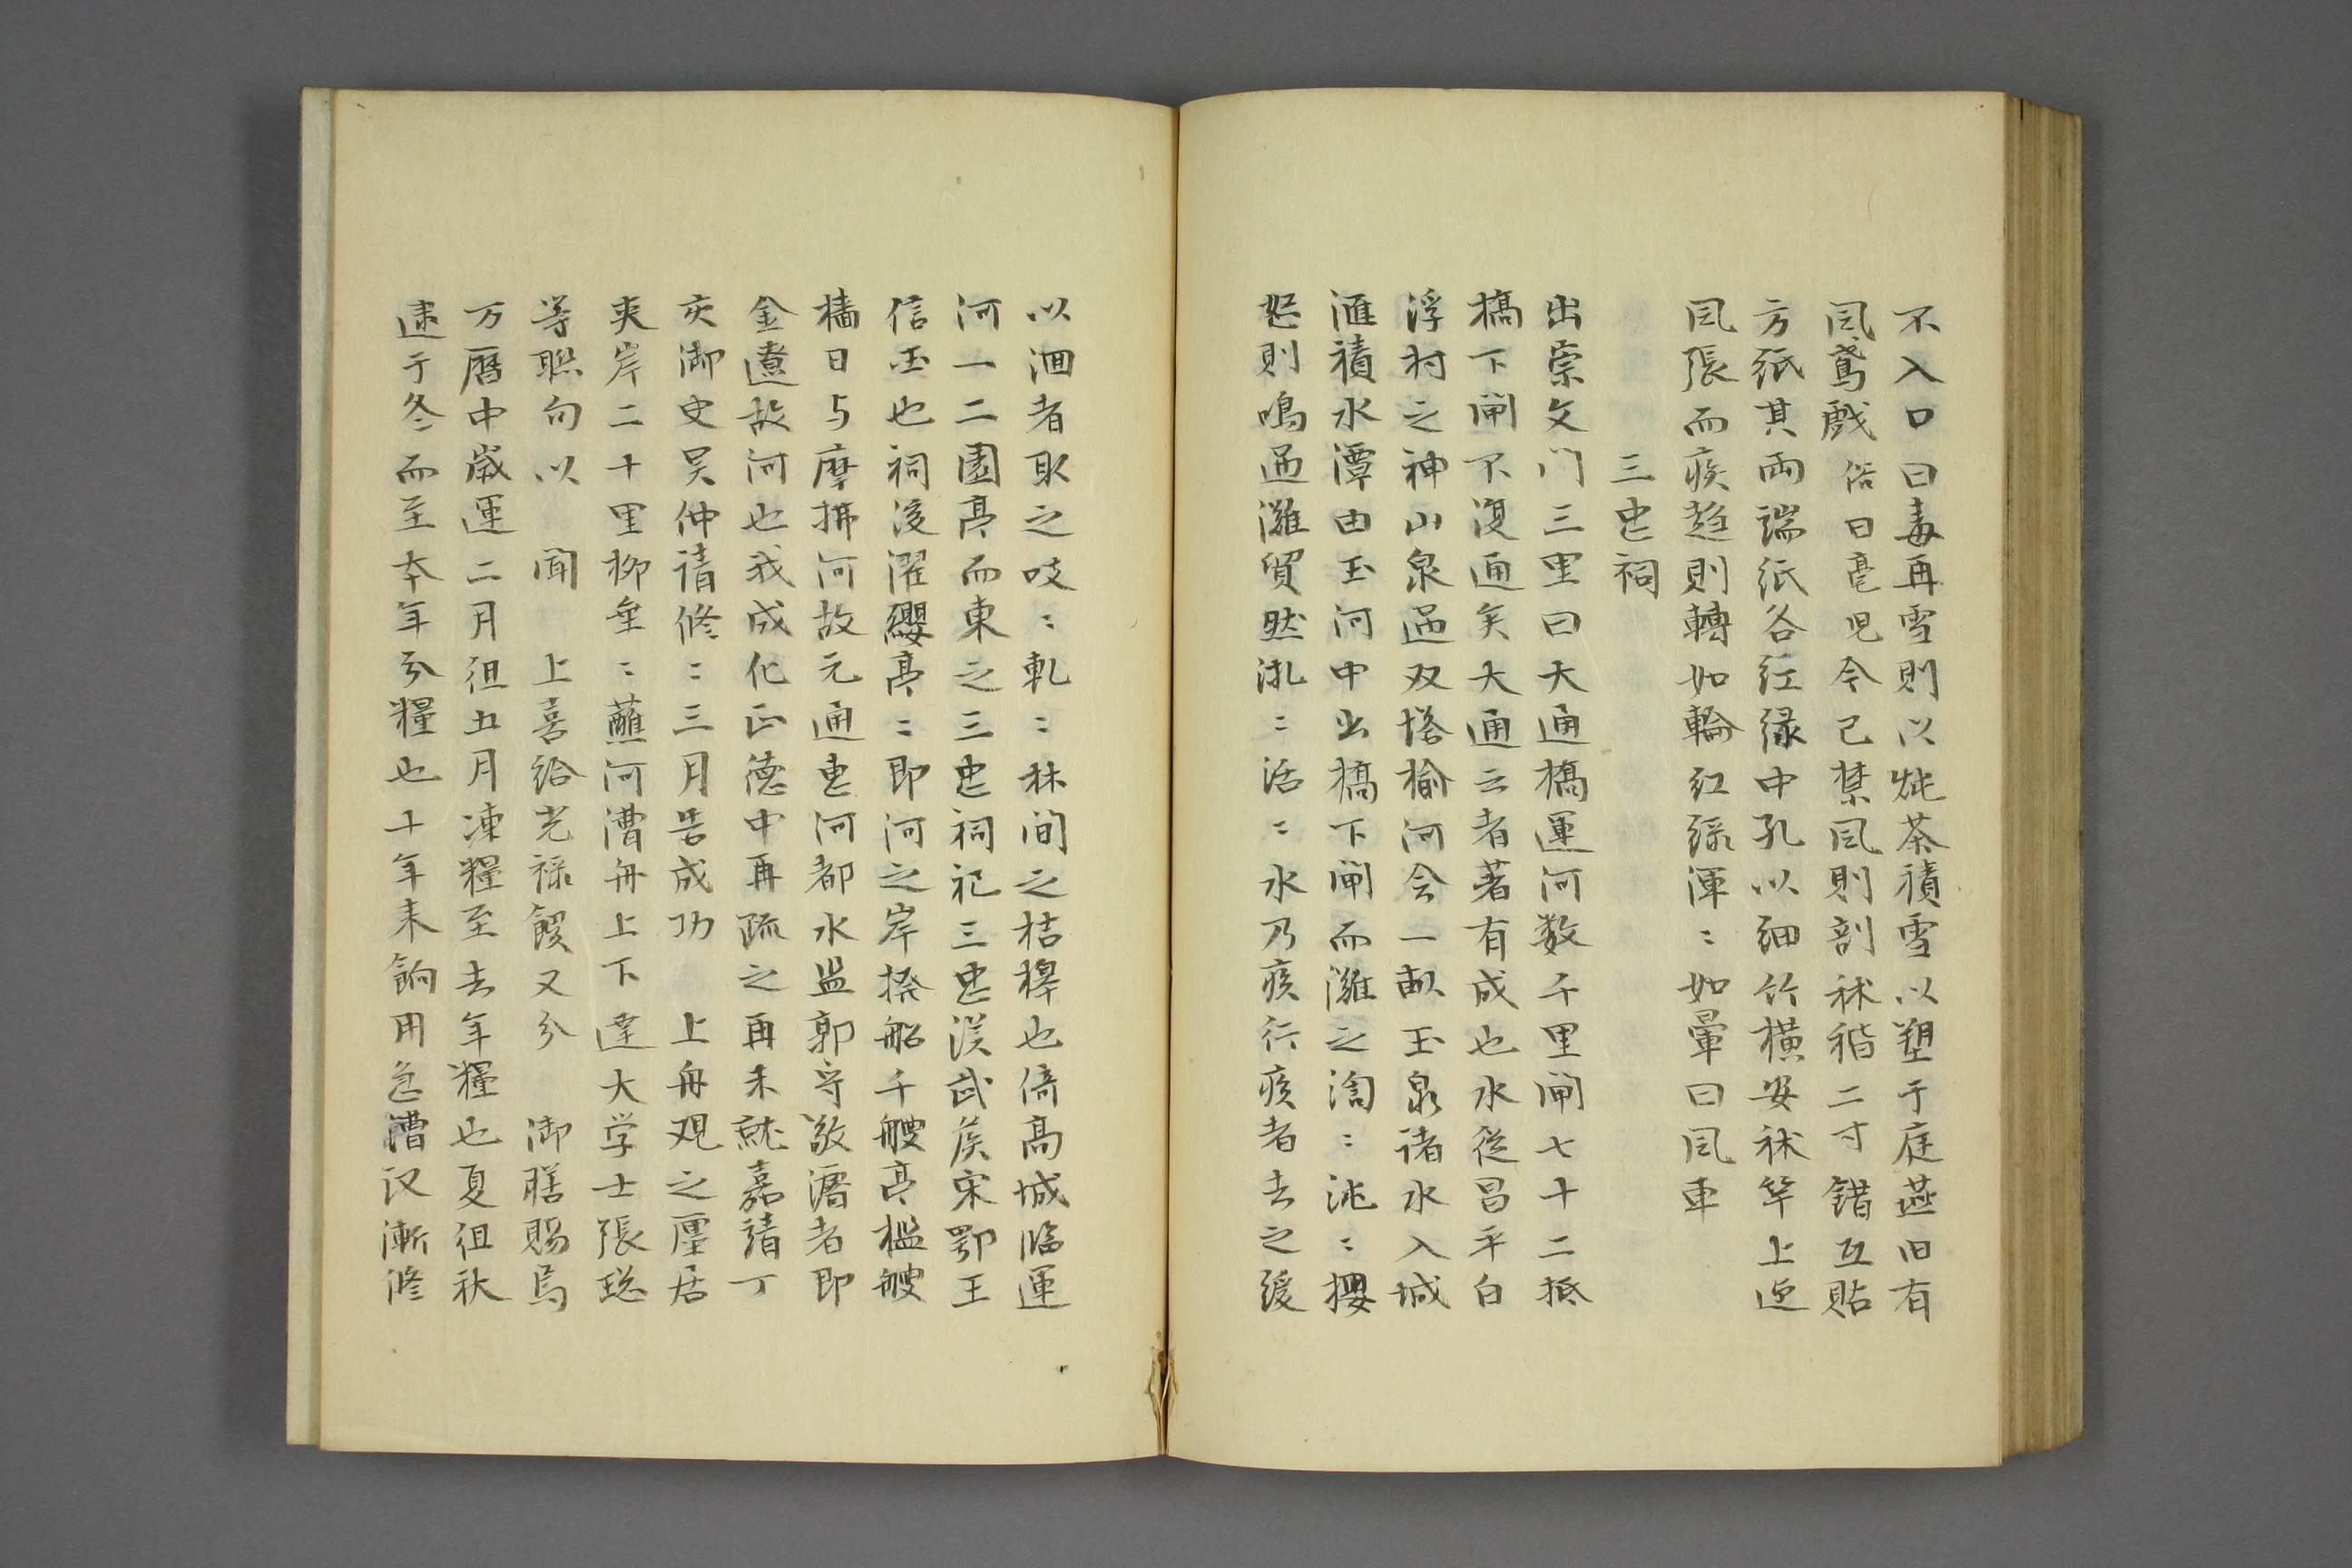 不入口曰毒再雪則以炖茶積雪以塑于庭燕旧有
风鳶戲俗曰毫児今已禁风則剖秫稭二寸錯互貼
方紙其兩端紙各紅緑中孔以細竹横安秫竿上迎
风張而疾趍則轉如輪紅緑渾〻如暈曰风車
三忠祠
出崇文门三里曰大通橋運河数千里閘七十二抵
橋下閘不復通矣大通云者著有成也水從昌平白
浮村之神山泉過双塔榆河会一畝玉泉诸水入城
滙積水潭由玉河中出橋下閘而灘之淘〻洮〻攖
怒則鳴過灘貿然汍〻活〻水乃疾行疾者去之緩
以洄者取之吱〻軋〻林间之桔槔也倚高城临運
河一二園亭而東之三忠祠祀三忠漢武矦宋鄂王
信国也祠後濯纓亭〻即河之岸撥船千艘亭檻艘
檣日与摩拂河故元通惠河都水監郭守敬濬者即
金遼故河也我成化正德中再疏之再未就嘉靖丁
亥御史吴仲请修〻三月告成功　上舟观之廛居
夾岸二十里柳垂〻蘸河漕舟上下逹大学士張璁
等聮句以　聞　上喜给光禄饌又分　御膳賜焉
万曆中歳運二月徂五月凍糧至去年糧也夏徂秋
逮于冬而至本年分糧也十年来餉用急漕汉漸修